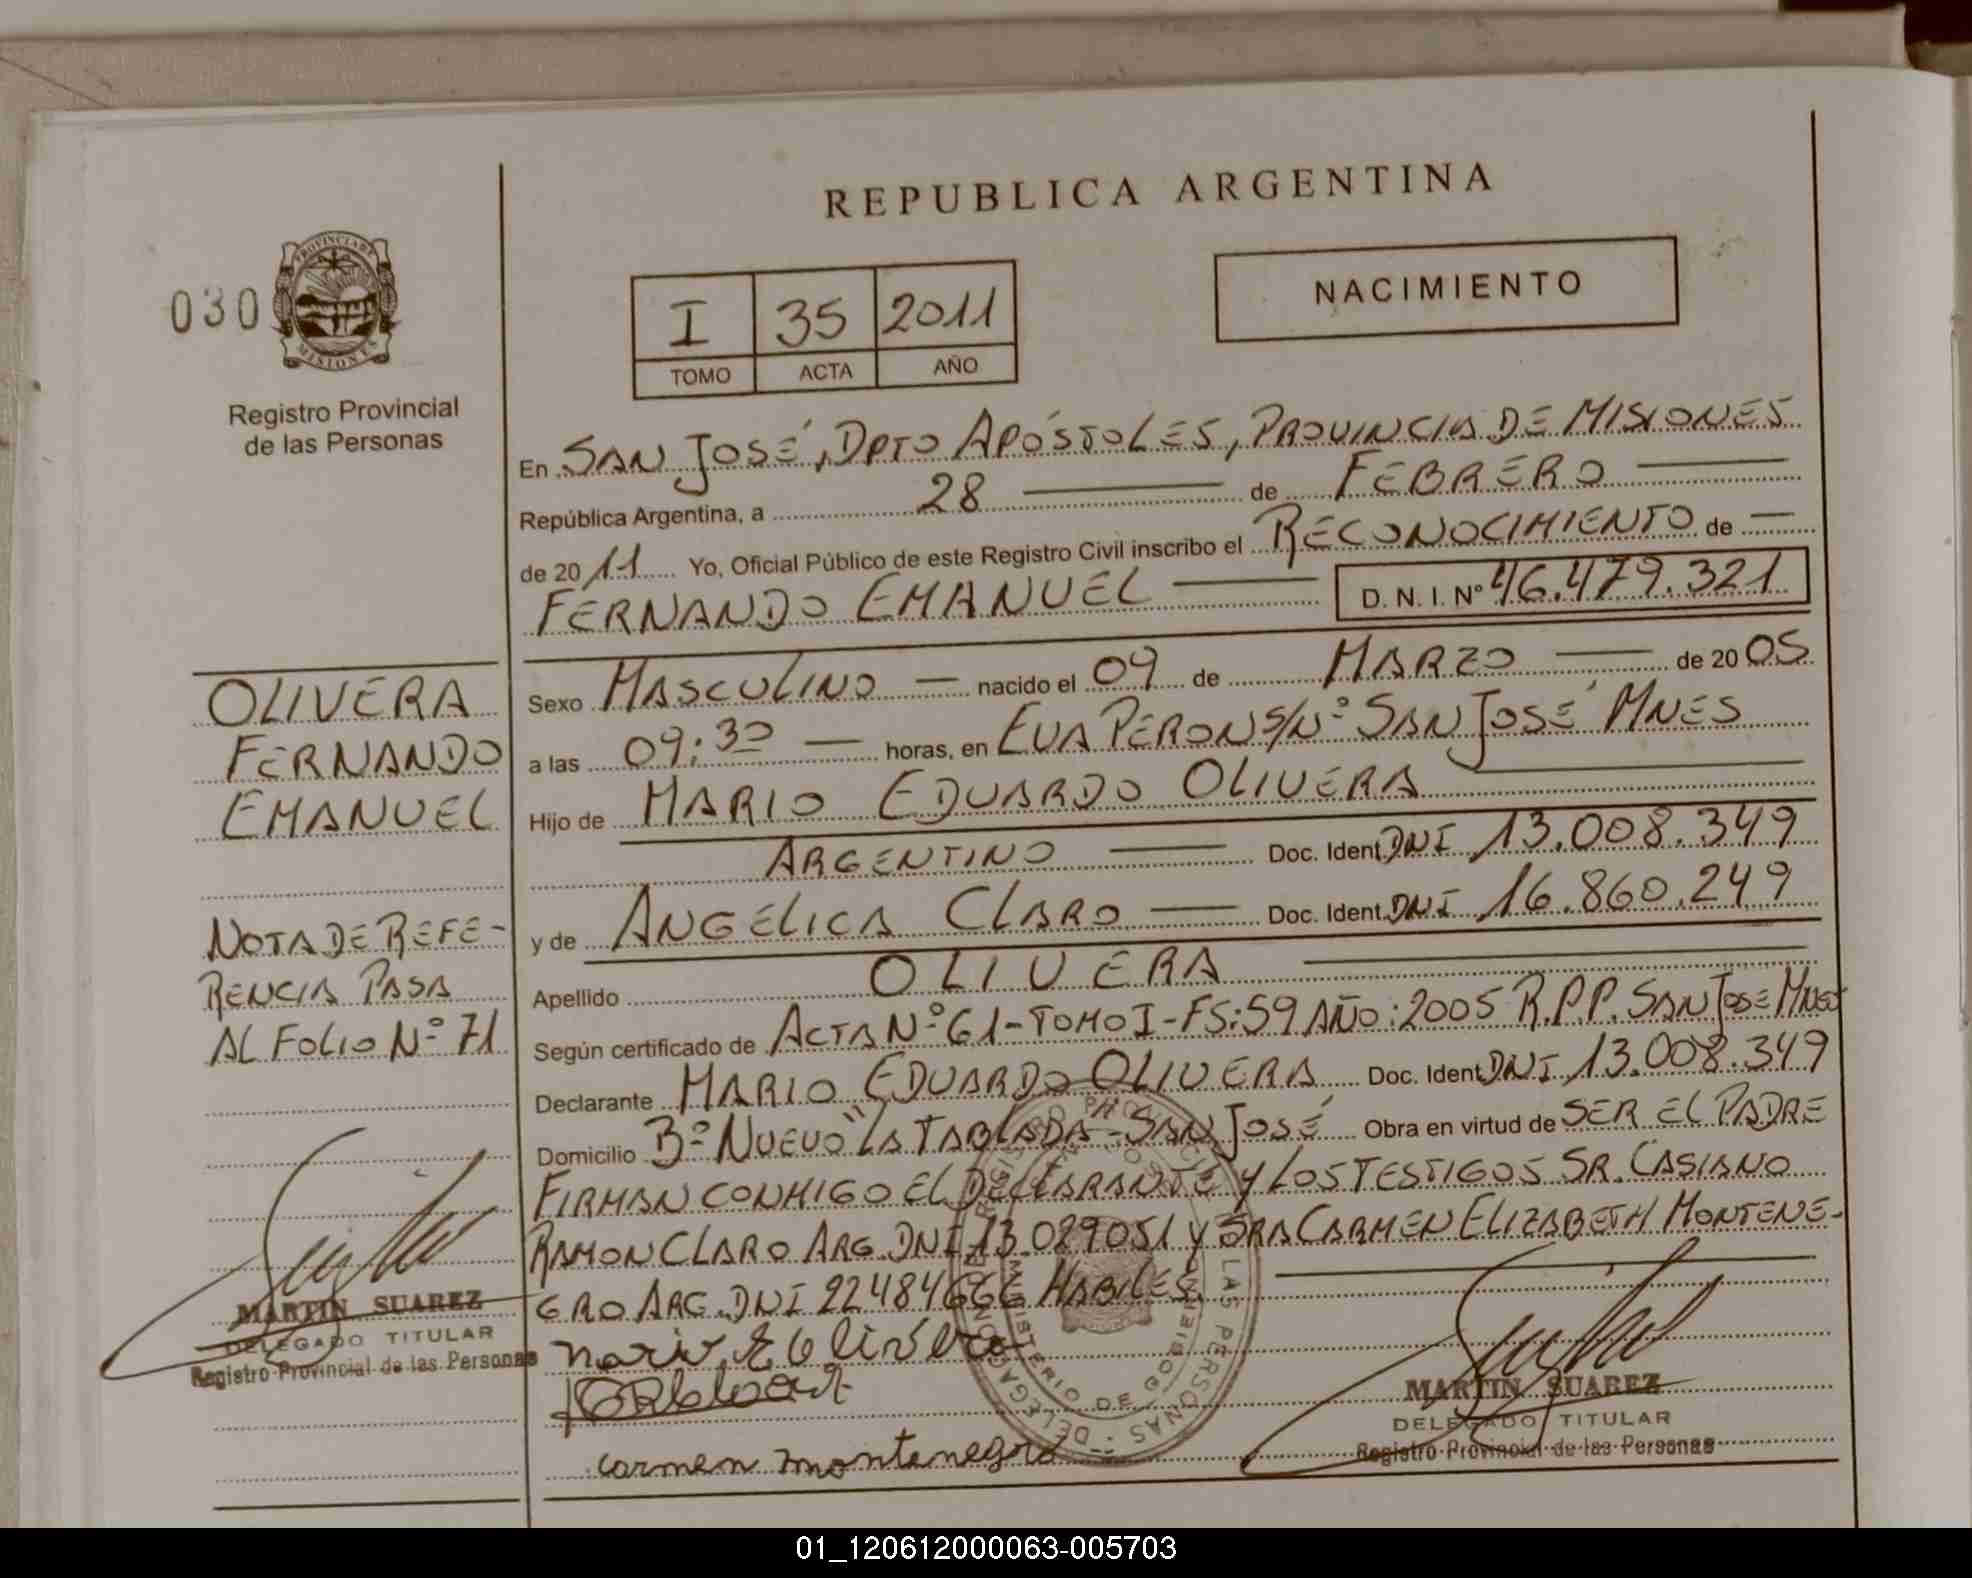 REPUBLICA ARGENTINA
030
PROVINCIA DE
MISIONES
Registro Provincial
de las Personas
I 35 2011
TOMO ACTA AÑO
NACIMIENTO
En SAN JOSÉ, DPTO APÓSTOLES, PROVINCIA DE MISIONES
República Argentina, a 28 de FEBRERO
de 2011 Yo, Oficial Público de este Registro Civil inscribo el RECONOCIMIENTO de
FERNANDO EMANUEL D.N.I. Nº 46.479.321
Sexo MASCULINO nacido el 09 de MARZO de 2005
a las 09:30 horas, en EVA PERON S/Nº SAN JOSÉ MNES
Hijo de MARIO EDUARDO OLIVERA
ARGENTINO Doc. Ident. DNI 13.008.349
y de ANGÉLICA CLARO Doc. Ident. DNI 16.860.249
Apellido OLIVERA
Según certificado de ACTA Nº 61-TOMO I-FS:59 AÑO:2005 R.P.P. SAN JOSE MNES
Declarante MARIO EDUARDO OLIVERA Doc. Ident. DNI 13.008.349
Domicilio Bº NUEVO "LA TABLADA-SAN JOSÉ Obra en virtud de SER EL PADRE
FIRMAN CONMIGO EL DECLARANTE Y LOS TESTIGOS SR. CASIANO
RAMON CLARO ARG. DNI 13.029051 Y SRA CARMEN ELIZABETH MONTENE-
GRO ARG. DNI 22484666 HABILES.
carmen montenegro
MARTIN SUAREZ
DELEGADO TITULAR
Registro Provincial de las Personas
OLIVERA
FERNANDO
EMANUEL
NOTA DE REFE-
RENCIA PASA
AL FOLIO Nº 71
MARTIN SUAREZ
DELEGADO TITULAR
Registro Provincial de las Personas
MINISTERIO DE GOBIERNO
01_120612000063-005703